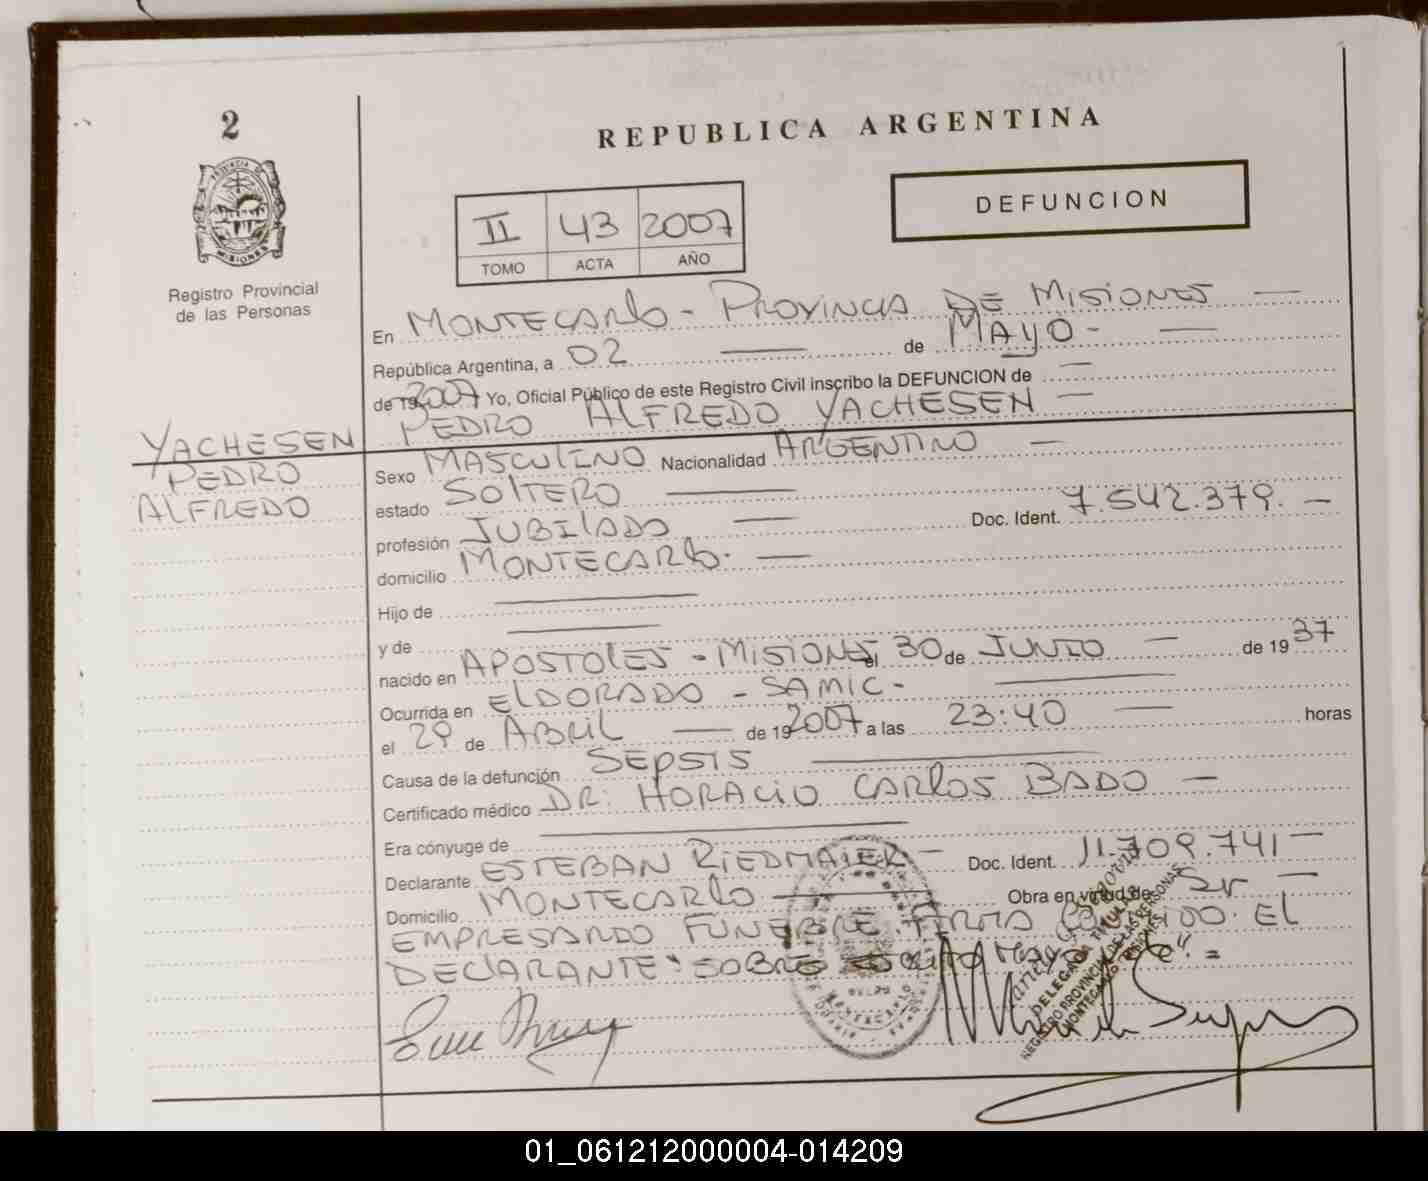 2
REPUBLICA ARGENTINA
DEFUNCION
II 43 2007
TOMO ACTA AÑO
Registro Provincial
de las Personas
En MONTECARLO - PROVINCIA DE MISIONES —
República Argentina, a 02 — de MAYO - —
de 19 2007 Yo, Oficial Público de este Registro Civil inscribo la DEFUNCION de —
PEDRO ALFREDO YACHESEN —
YACHESEN
PEDRO
ALFREDO
Sexo MASCULINO Nacionalidad ARGENTINO —
estado SOLTERO —
profesión JUBILADO — Doc. Ident. 7.542.379. —
domicilio MONTECARLO. —
Hijo de —
y de —
nacido en APOSTOLES - MISIONES el 30 de JUNIO — de 19 37
Ocurrida en ELDORADO - SAMIC - —
el 29 de ABRIL — de 19 2007 a las 23:40 — horas
Causa de la defunción SEPSIS —
Certificado médico DR: HORACIO CARLOS BADO —
Era cónyuge de —
Declarante ESTEBAN RIEDMAIER — Doc. Ident. 11.709.741 —
Domicilio MONTECARLO — Obra en virtud de Sr —
EMPRESARDO FUNEBRE. FIRMA EL
DECLARANTE "SOBRE
DELEGADA TITULAR
REGISTRO PROVINCIAL DE LAS PERSONAS
MONTECARLO MISIONES
01_061212000004-014209